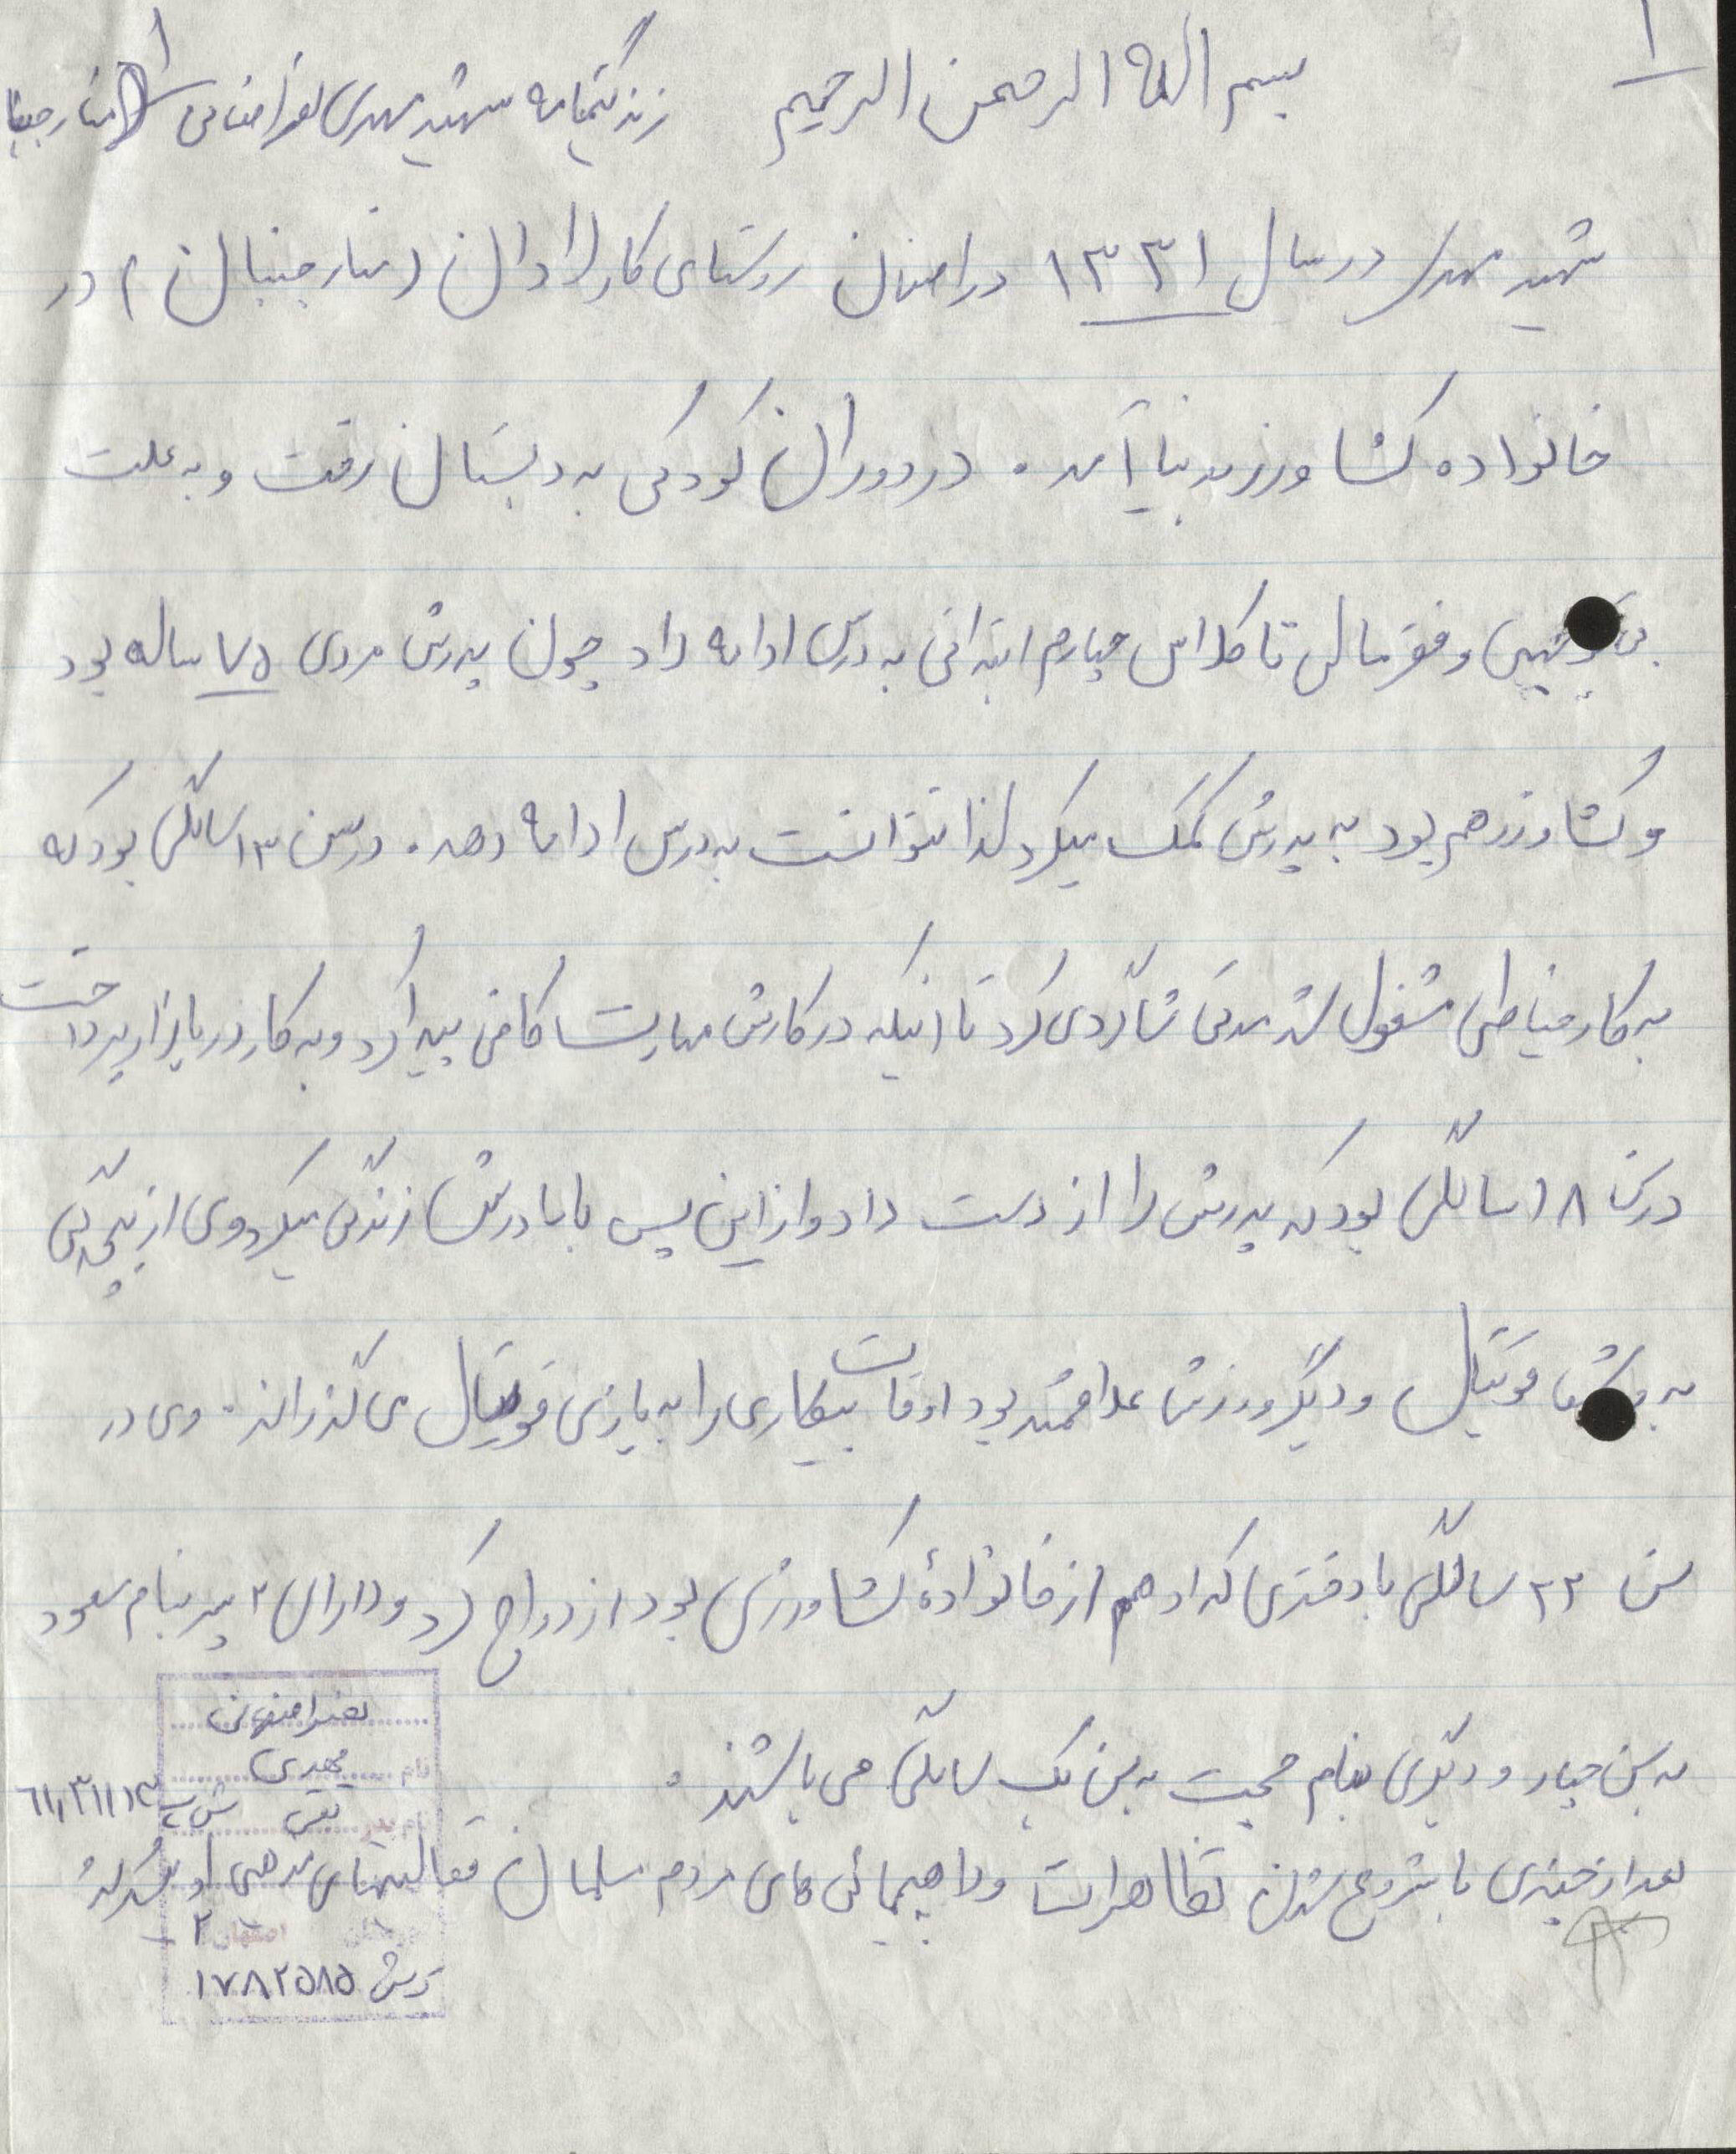 ۱
بسم الله الرحمن الرحیم زندگینامه شهید مهدی نصر اصفهانی
شهید مهدی در سال ۱۳۳۱ در اصفهان روستای کارلادان (منارجنبان) در
خانواده کشاورز بدنیا آمد . در دوران کودکی به دبستان رفت و به علت
و فقر مالی تا کلاس چهارم ابتدائی به درس ادامه داد چون پدرش مردی ۷۵ ساله بود
و کشاورز هم بود به پدرش کمک میکرد لذا نتوانست به درس ادامه دهد . در سن ۱۳ سالگی بود که
به کار خیاطی مشغول شد مدتی شاگردی کرد تا اینکه در کارش مهارت کافی پیدا کرد و به کار در بازار پرداخت
در سن ۱۸ سالگی بود که پدرش را از دست داد و از این پس با مادرش زندگی میکرد وی از بچگی
به ورزش فوتبال و دیگر ورزش علاقمند بود اوقات بیکاری را به بازی فوتبال می گذراند . وی در
سن ۲۲ سالگی با دختری که او هم از خانوادهٔ کشاورزی بود ازدواج کرد و دارای ۲ پسر بنام مسعود
به سن چهار و دیگری بنام حجت به سن یک سالگی می باشند .
بعد از چندی با شروع شدن تظاهرات و راهپیمائی های مردم مسلمان فعالیتهای مذهبی او
نصر اصفهانی
نام مهدی
نام پدر تقی
اصفهان ۲
۱۷۸۲۵۸۵